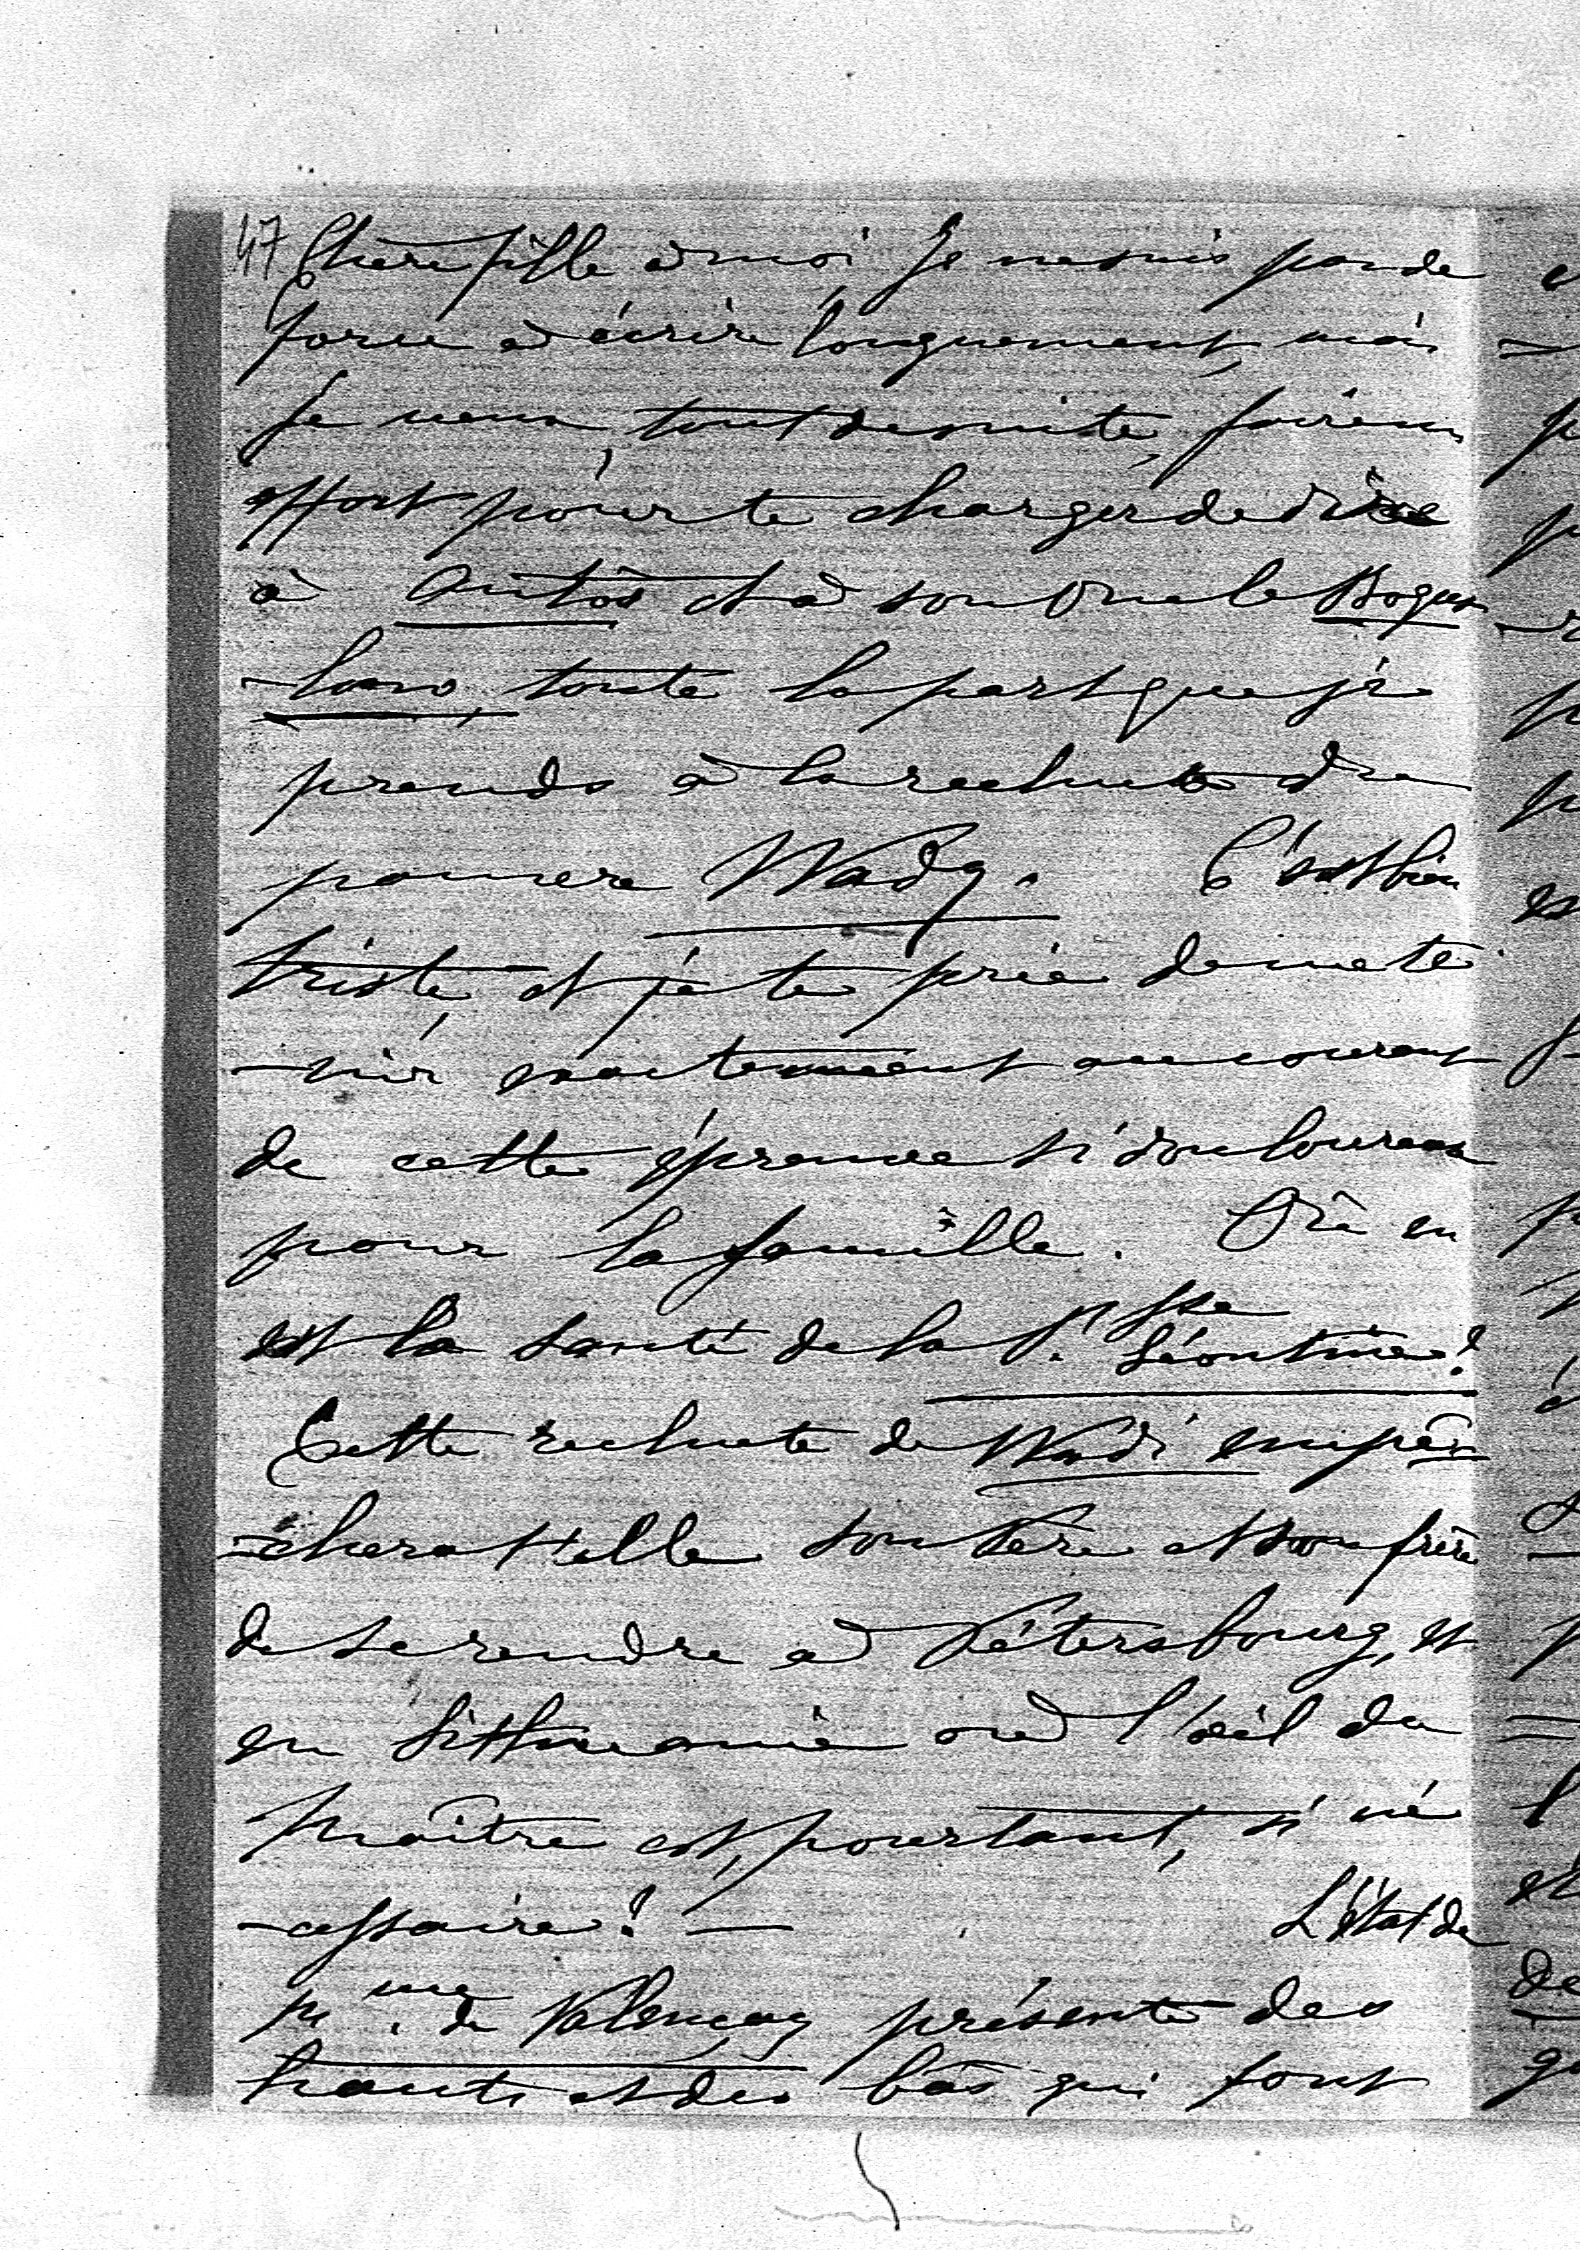 47 Chère fille à moi, je ne suis pas de
force à écrire longuement, mais
je veux, tout de suite, faire un
effort pour te charger de dire
à Antoś et à son Oncle Bogus
-law, toute la part que je
prends à la rechute du
pauvre Wady. C'est bien
triste, et je te prie de me te
-nir exactement au courant
de cette épreuve si douloureuse
pour la famille. Où en
est la santé de la Psse Léontine?
Cette rechute de Wadi empê
-chera-t-elle son Père et son frère
de se rendre à Pétersbourg, et
en Litthuanie où l'œil du
Maître est, pourtant, si né
-cessaire? — L'état de
Mme de Valençay présente des
hauts et des bas qui font